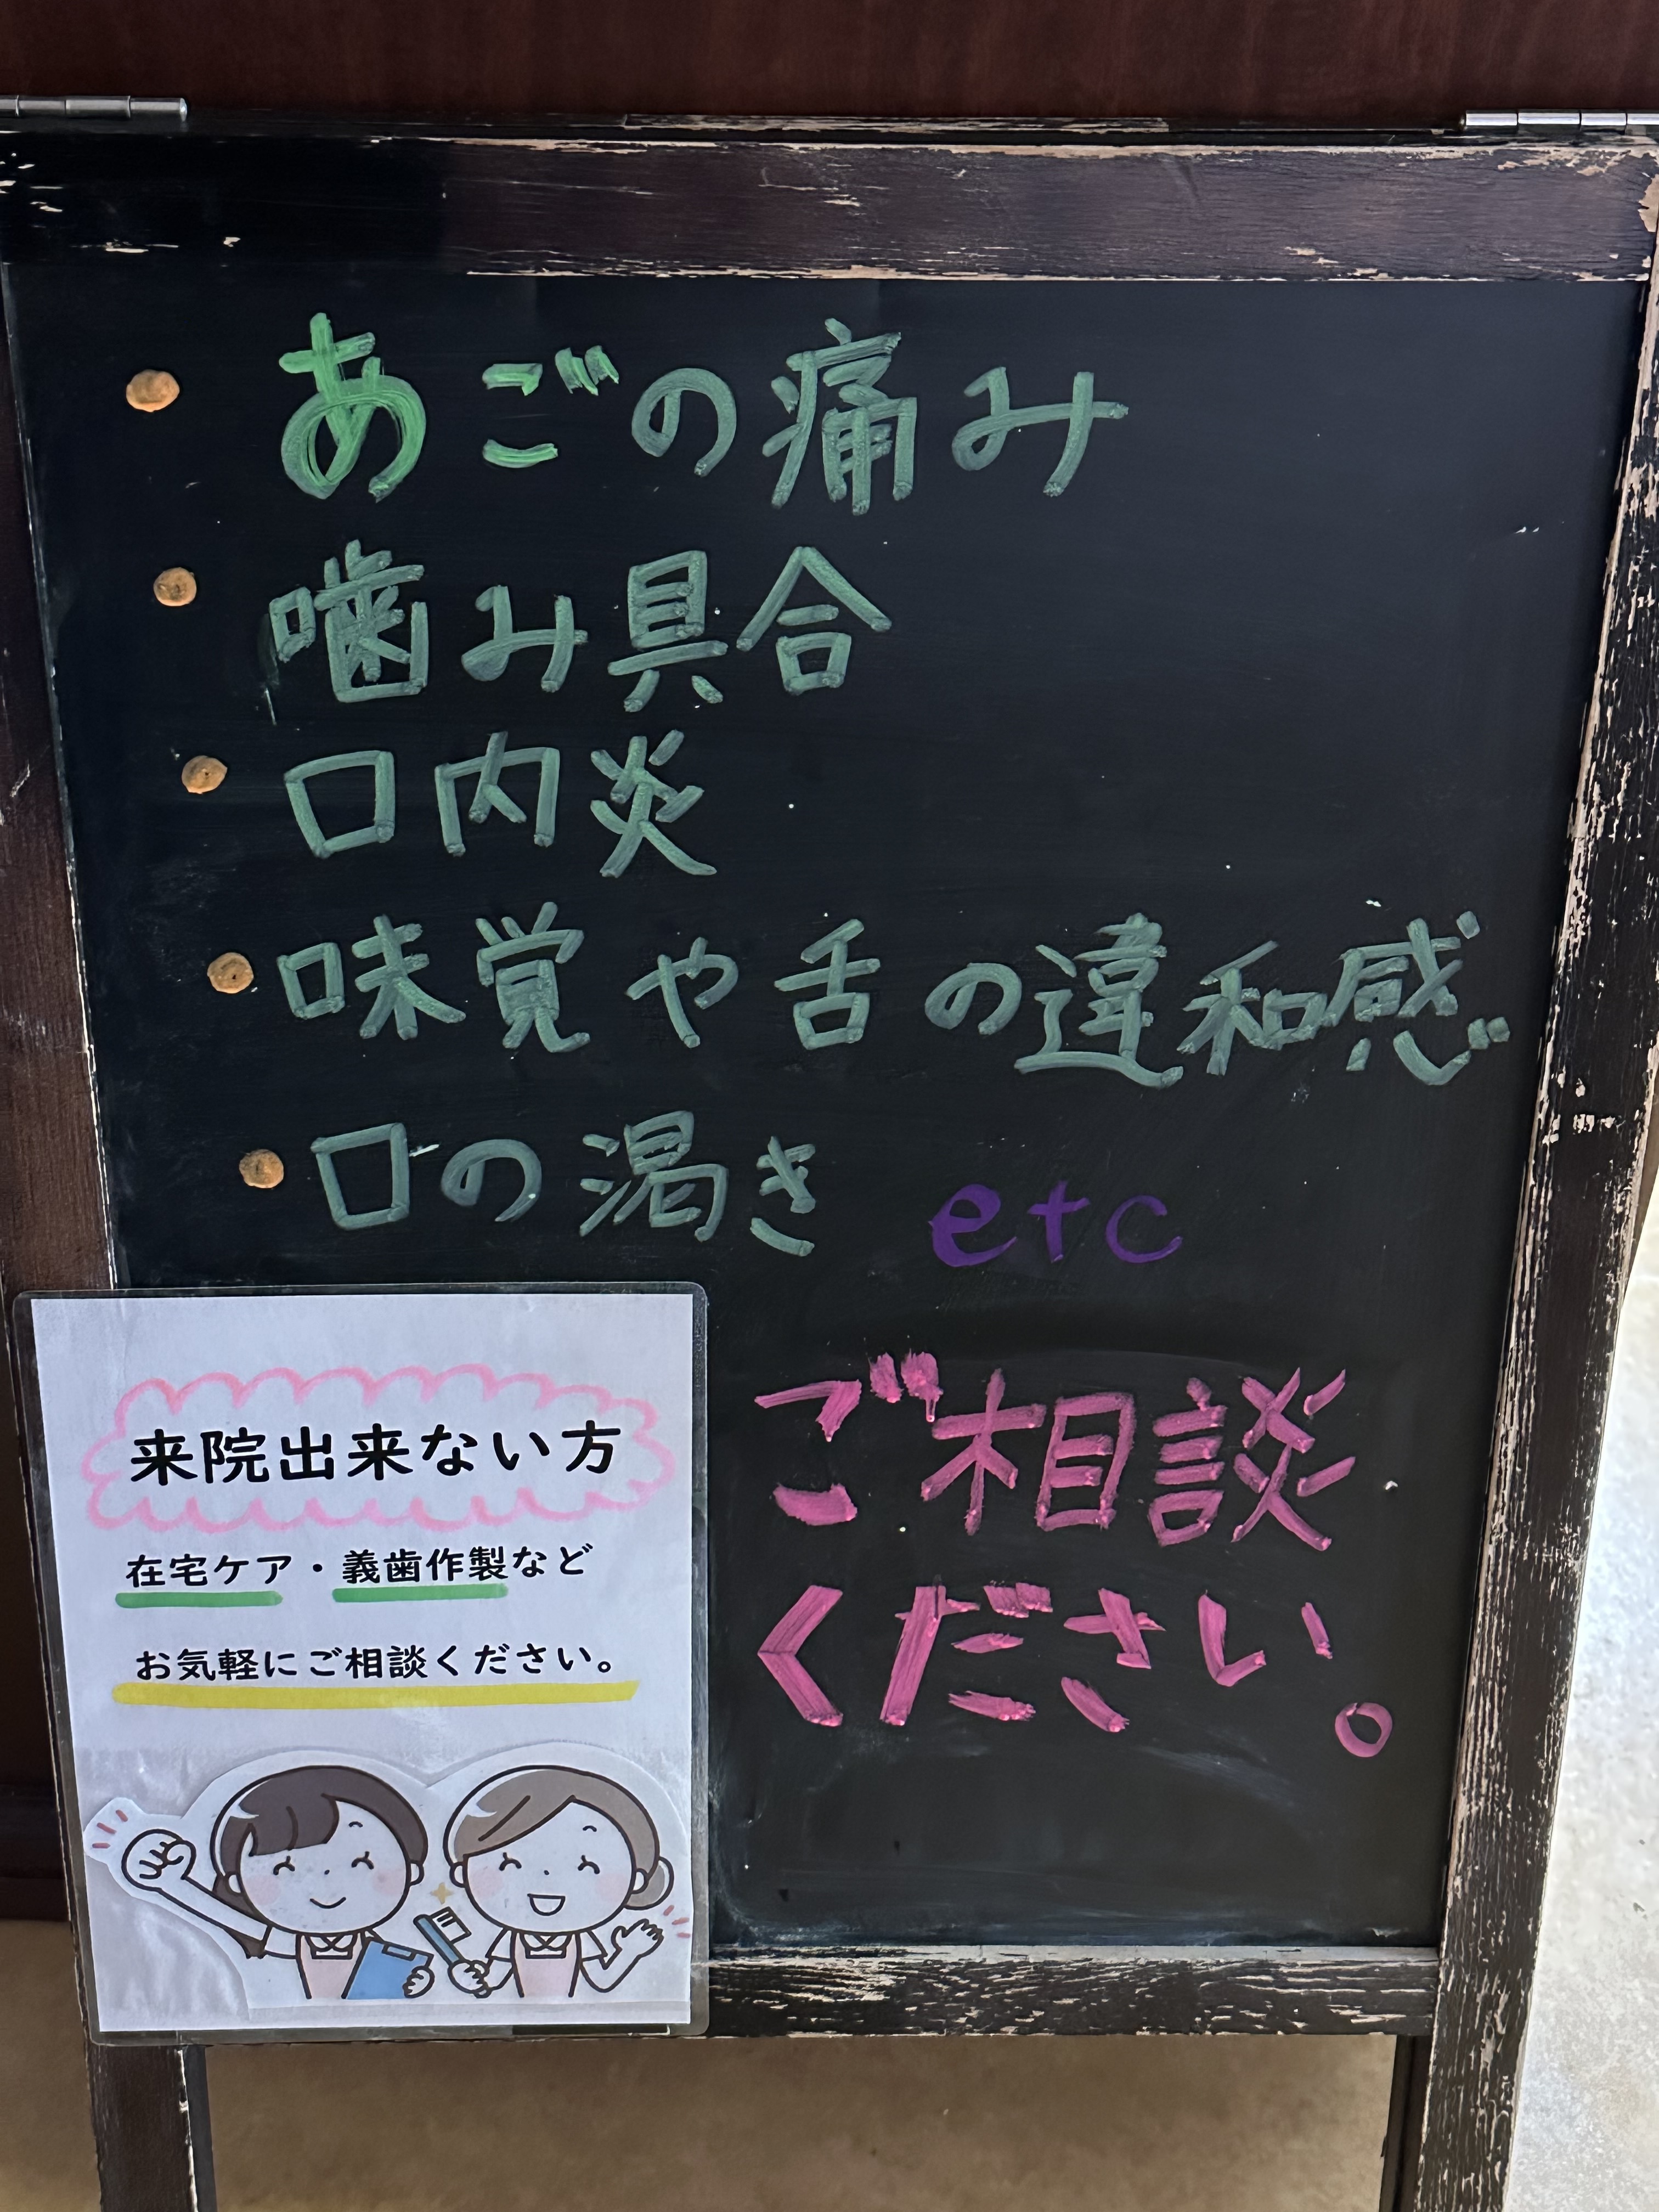 ・あごの痛み
・噛み具合
・口内炎
・味覚や舌の違和感
・口の渇き etc
ご相談
ください。
来院出来ない方
在宅ケア・義歯作製など
お気軽にご相談ください。